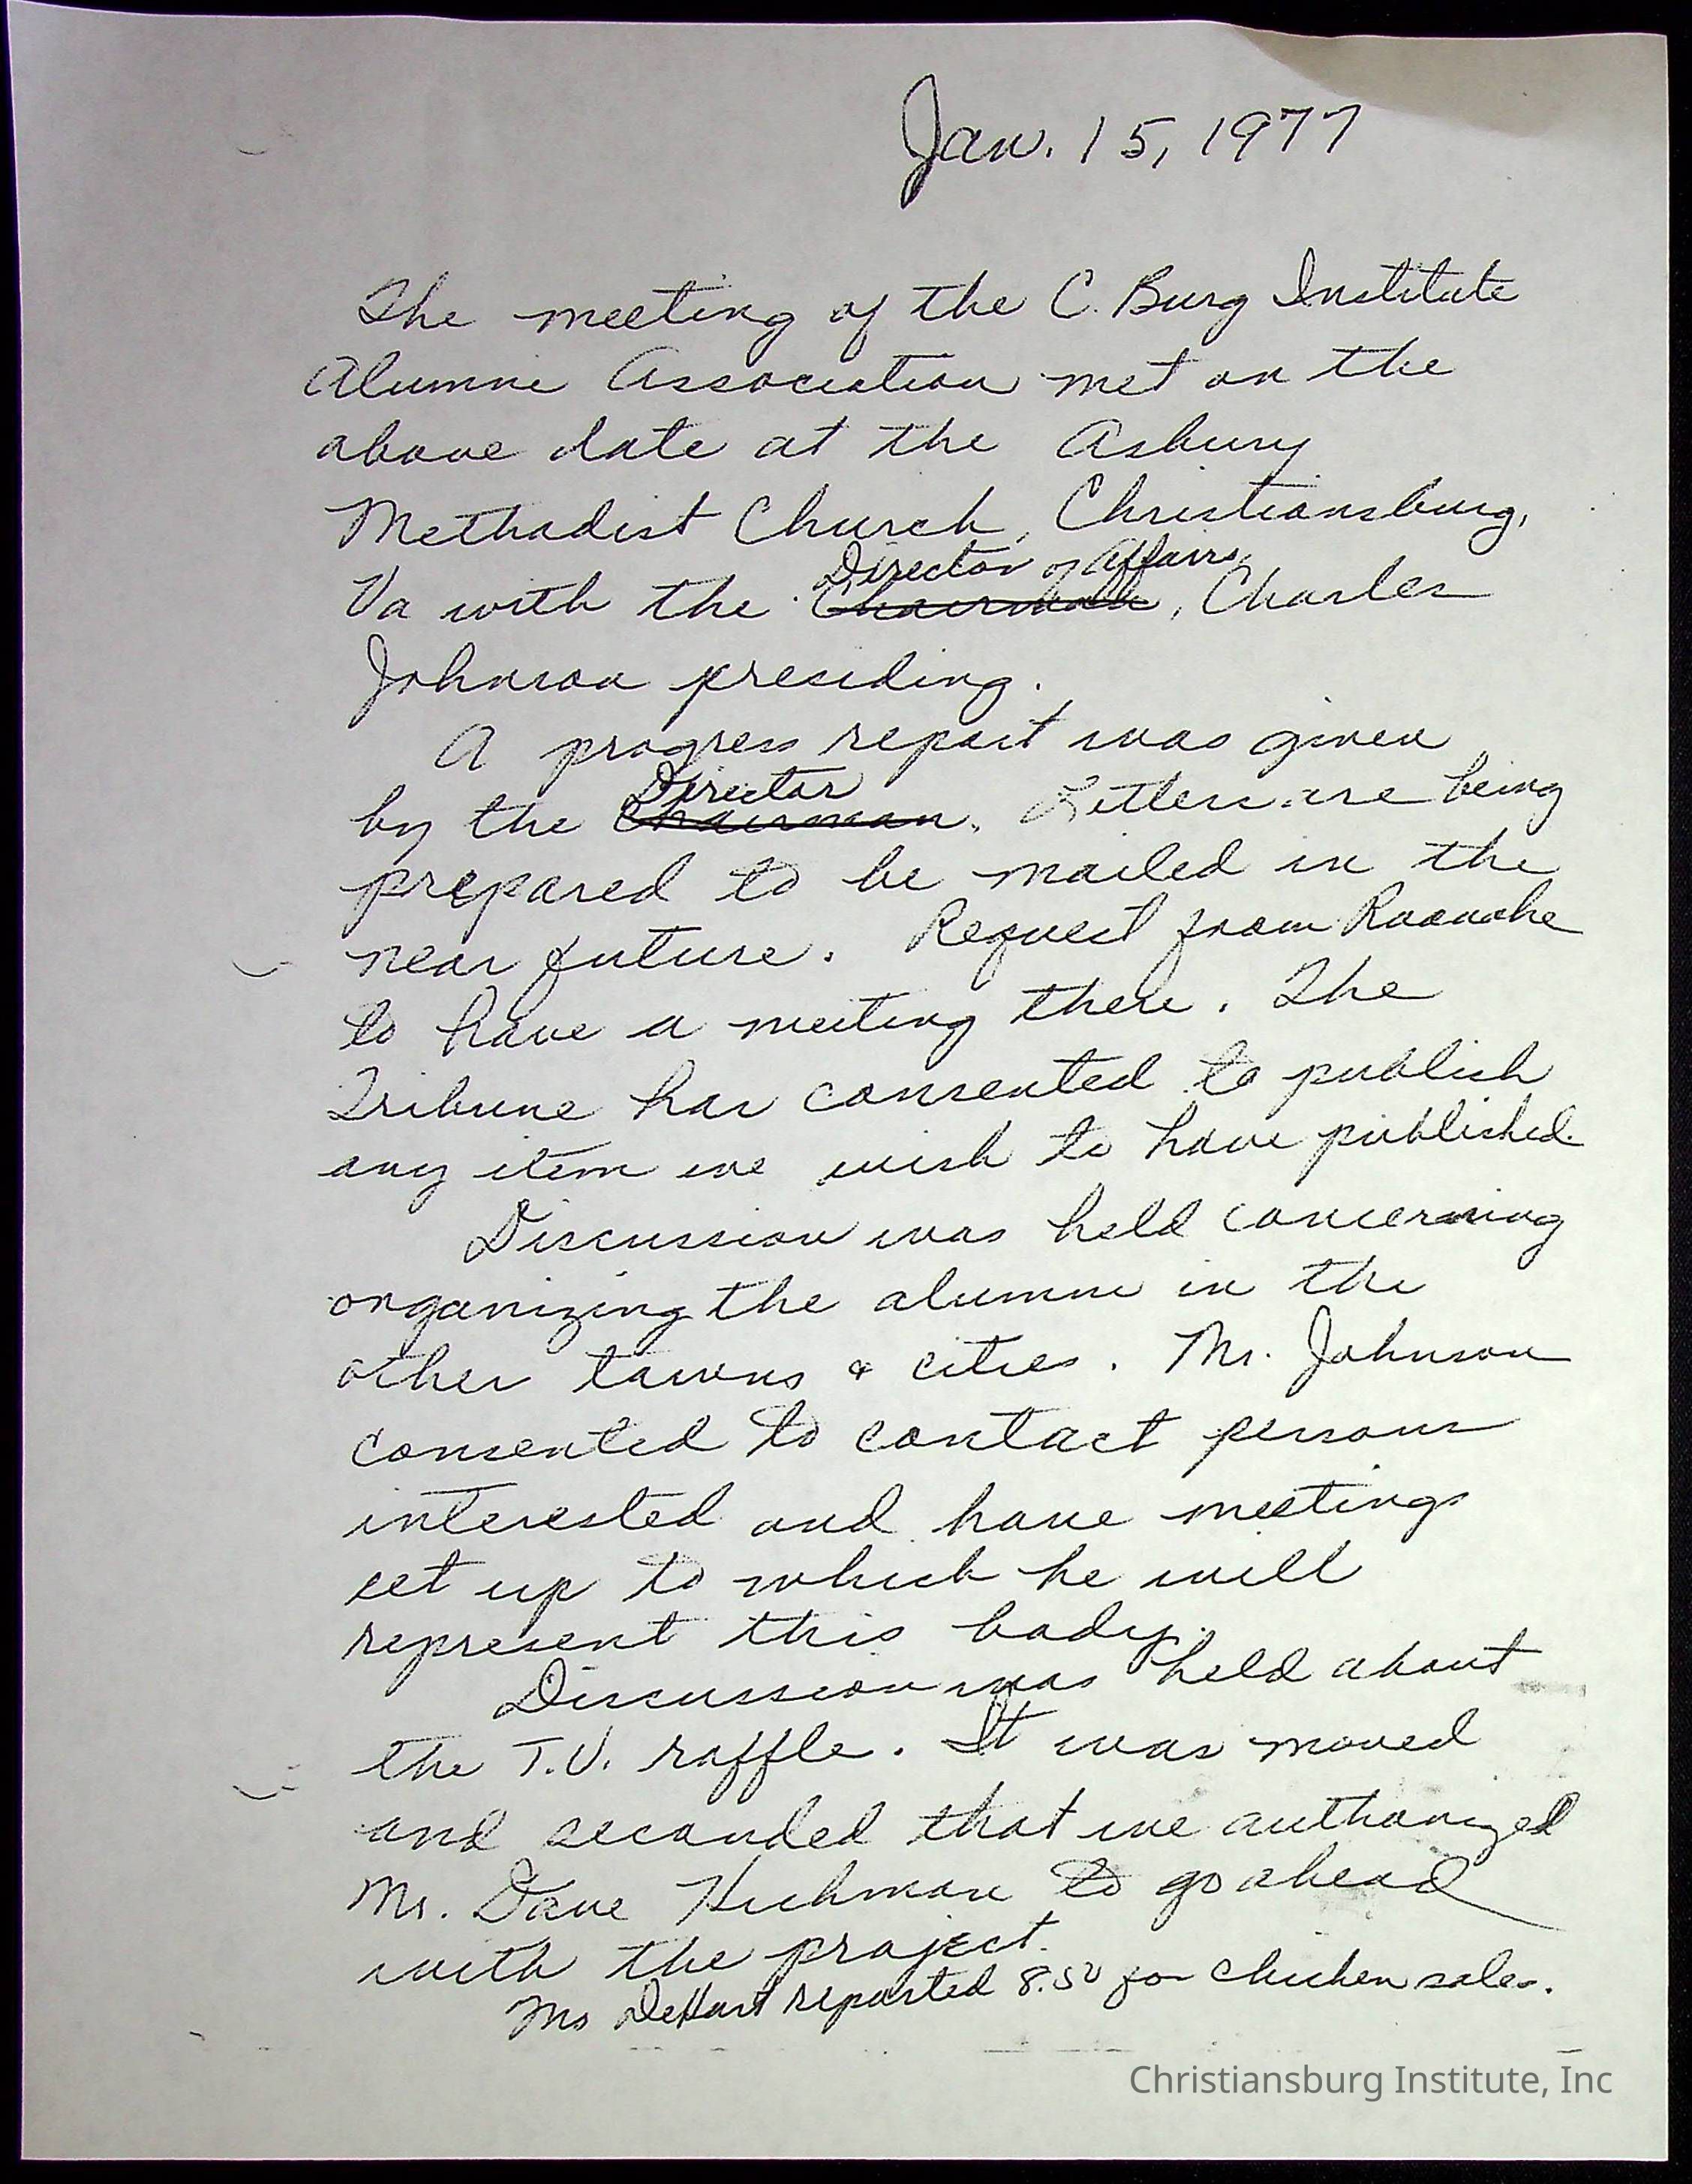 Jan. 15, 1977
The meeting of the C. Burg Institute
Alumni Association met on the
above date at the Asbury
Methodist Church, Christiansburg,
Director of Affairs
Va with the Chairman, Charles
Johnson presiding.
A progress report was given
Director
by the Chairman. Letters are being
prepared to be mailed in the
near future. Request from Roanoke
to have a meeting there. The
Tribune has consented to publish
any item we wish to have published.
Discussion was held concerning
organizing the alumni in the
other towns & cities. Mr. Johnson
consented to contact persons
interested and have meetings
set up to which he will
represent this body.
Discussion was held about
the T.V. raffle. It was moved
and seconded that we authorized
Mr. Dave Hickman to go ahead
with the project.
Ms DeHart reported 8.50 for chicken sales.
Christiansburg Institute, Inc